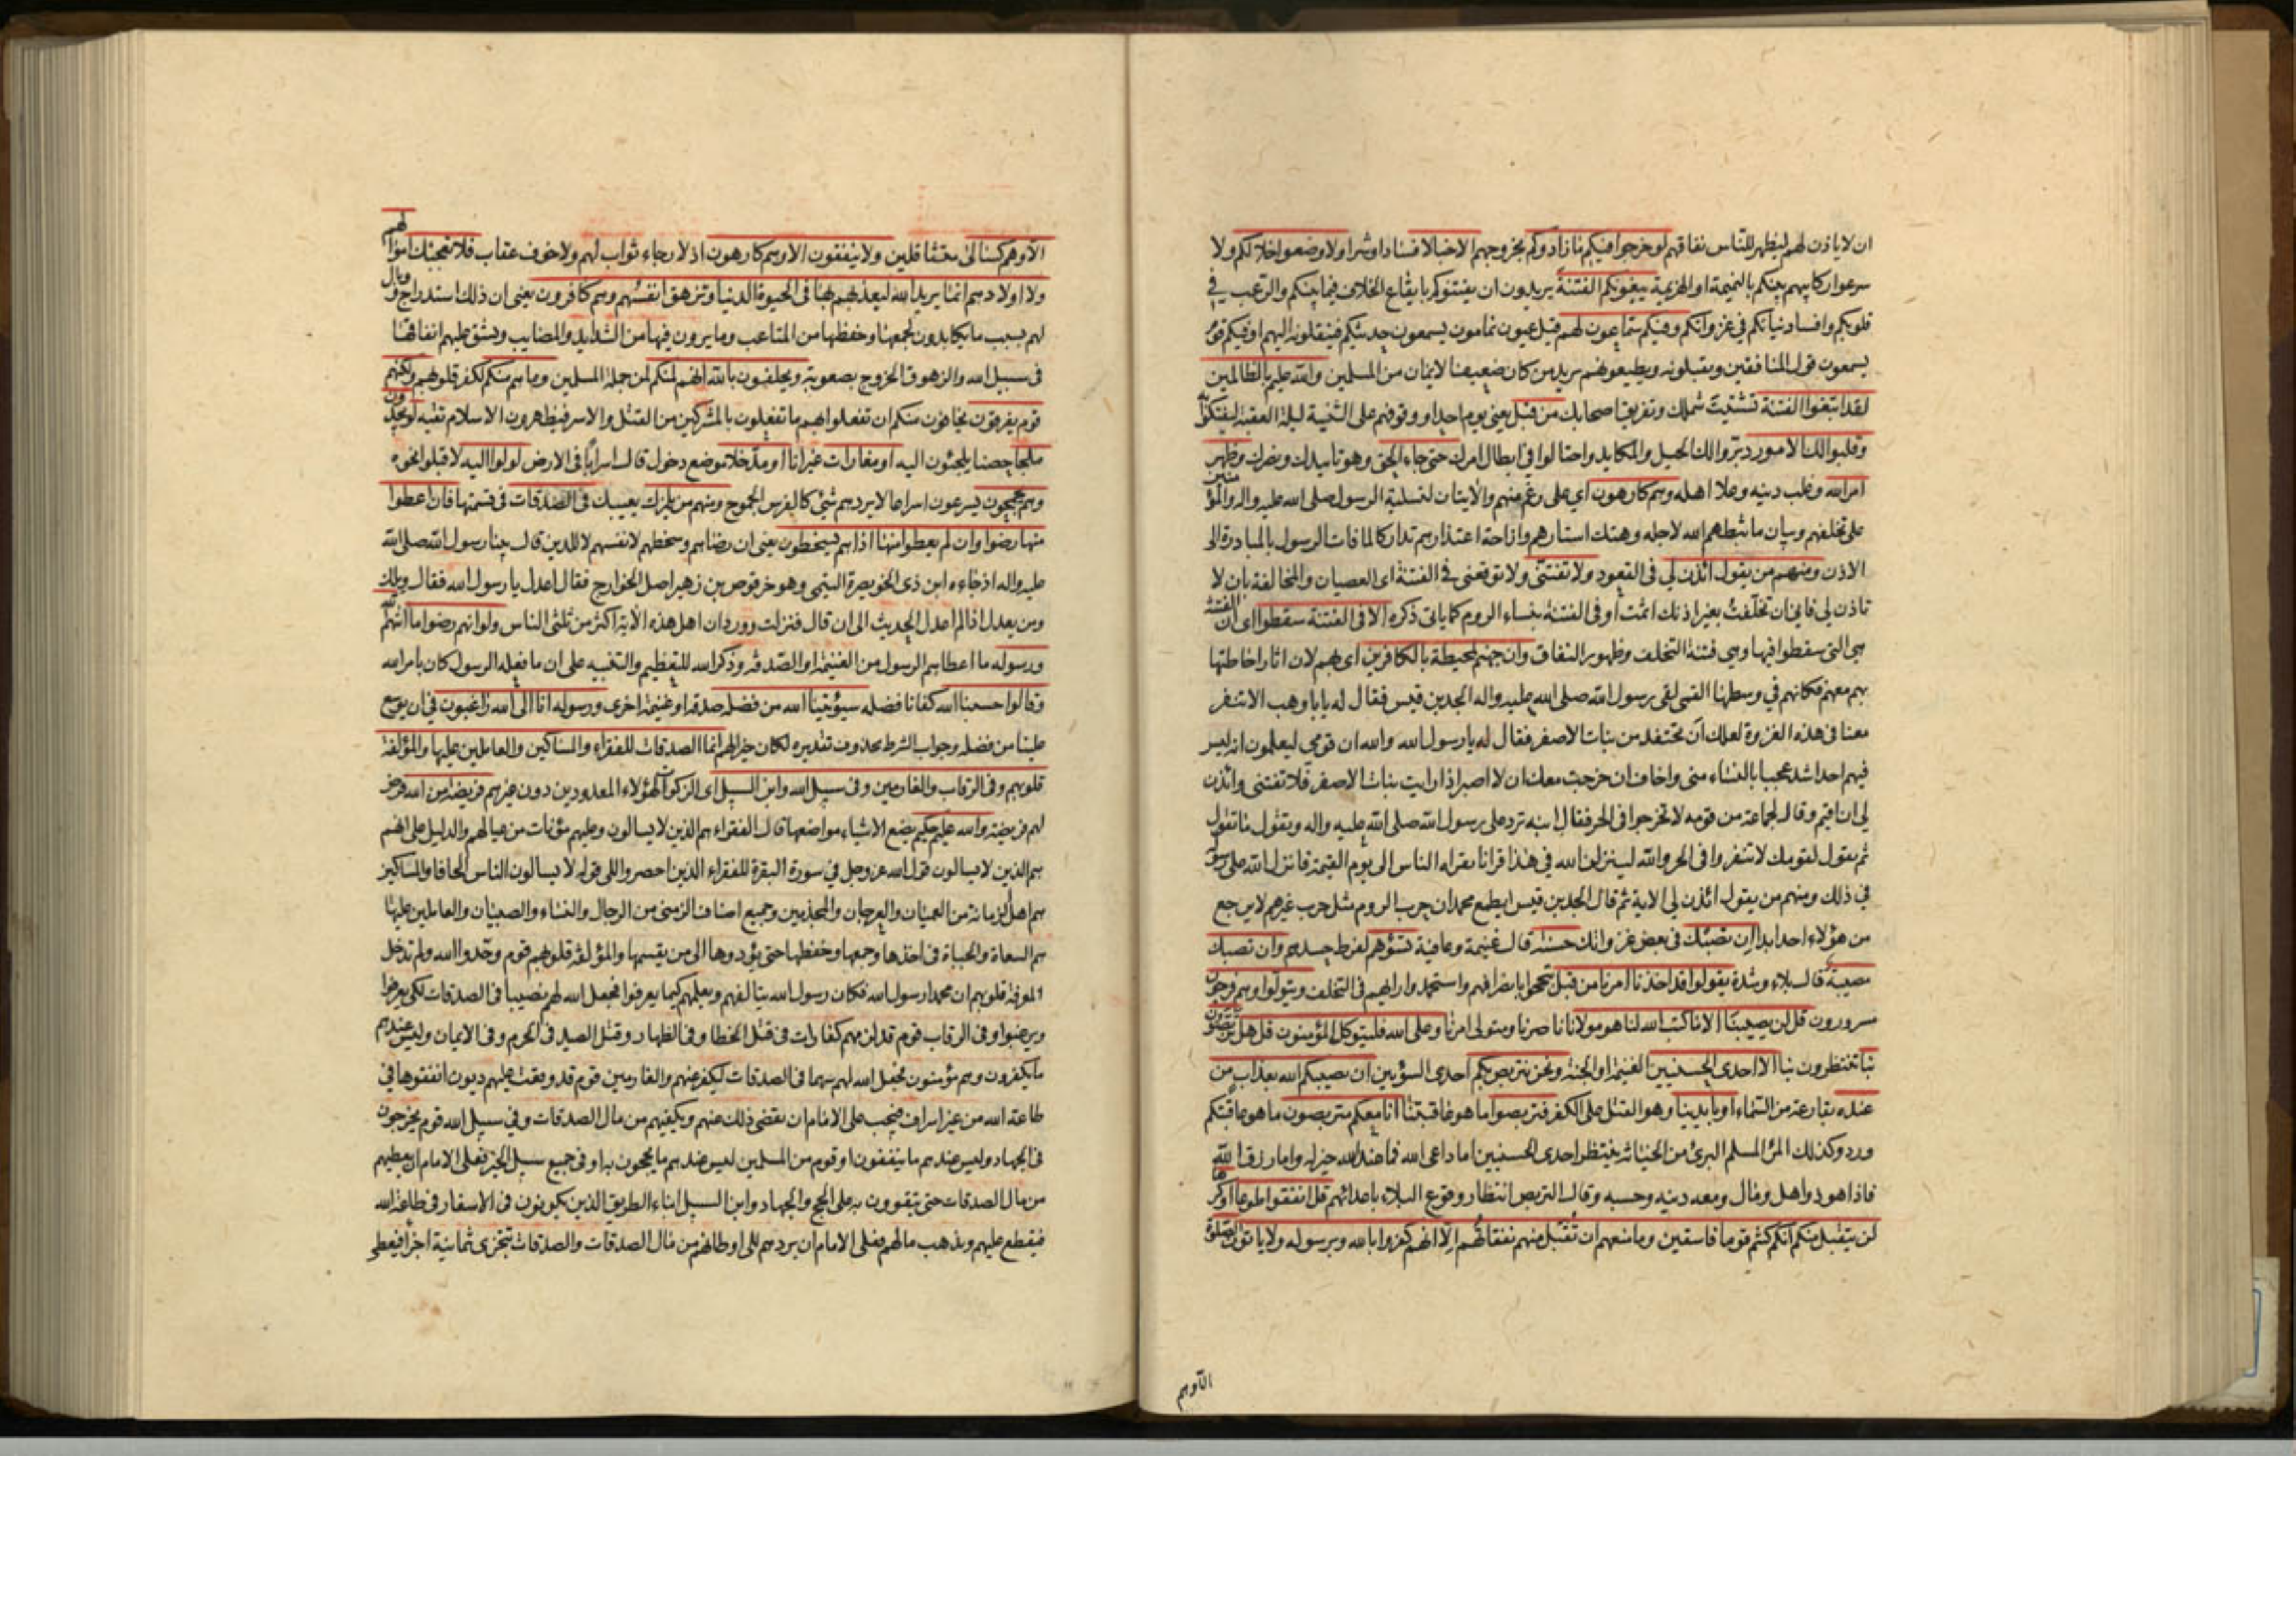 ان لا ياذن لهم ليظهر للناس نفاقهم لو خرجوا فيكم ما زادوكم بخروجهم الا خبالا فسادا وشرا ولا وضعوا خلالكم ولا
سرعوا ركايبهم بينكم بالنميمة او الهزيمة يبغونكم الفتنة يريدون ان يفتنوكم بايقاع الخلاف فيما بينكم والرعب في
قلوبكم وافساد نياتكم في غزواتكم وفيكم سماعون لهم قيل عيون نمامون يسمعون حديثكم فينقلونه اليهم او فيكم قوم
يسمعون قول المنافقين ويقبلونه ويطيعونهم يريد من كان ضعيف الايمان من المسلمين والله عليم بالظالمين
لقد ابتغوا الفتنة تشتيت شملك وتفريق اصحابك من قبل يعني يوم احد او وقوفهم على الثنية ليلة العقبة ليفتكوا به
وقلبوا لك الامور دبروا لك الحيل والمكايد واحتالوا في ابطال امرك حتى جاء الحق وهو تاييدك ونصرك وظهر
امر الله وغلب دينه وعلا اهله وهم كارهون اي على رغم منهم والايتان لتسلية الرسول صلى الله عليه واله والمؤمنين
على تخلفهم وبيان ما ثبطهم الله لاجله وهتك استارهم وازاحة اعتذارهم تداركا لما فات الرسول بالمبادرة الى
الاذن ومنهم من يقول ائذن لي في القعود ولا تفتنى ولا توقعنى في الفتنة اى العصيان والمخالفة بان لا
تاذن لى فاني ان تخلفت بغير اذنك اثمت او في الفتنة بنساء الروم كما ياتي ذكره الا في الفتنة سقطوا اى ان الفتنة
هي التي سقطوا فيها وهي فتنة التخلف وظهور النفاق وان جهنم لمحيطة بالكافرين اى بهم لان اثار احاطتها
بهم معهم فكانهم في وسطها القمى لقى رسول الله صلى الله عليه واله الجد بن قيس فقال له يا با وهب الا تنفر
معنا في هذه الغزوة لعلك ان تحتفد من بنات الاصفر فقال له يا رسول الله والله ان قومي ليعلمون انه ليس
فيهم احد اشد عجبا بالنساء منى واخاف ان خرجت معك ان لا اصبر اذا رايت بنات الاصفر فلا تفتنى وائذن
لي ان اقيم وقال لجماعة من قومه لا تخرجوا في الحر فقال ابنه ترد على رسول الله صلى الله عليه واله وتقول ما تقول
ثم تقول لقومك لا تنفروا في الحر والله لينزلن الله في هذا قرانا يقراه الناس الى يوم القيمة فانزل الله على رسوله
في ذلك ومنهم من يقول ائذن لي الاية ثم قال الجد بن قيس ايطمع محمد ان حرب الروم مثل حرب غيرهم لا يرجع
من هؤلاء احد ابدا ان تصبك في بعض غزواتك حسنة قال غنيمة وعافية تسؤهم لفرط حسدهم وان تصبك
مصيبة قال بلاء وشدة يقولوا قد اخذنا امرنا من قبل تبجحوا بانصرافهم واستحمدوا رايهم في التخلف ويتولوا وهم فرحون
مسرورون قل لن يصيبنا الا ما كتب الله لنا هو مولانا ناصرنا ومتولى امرنا وعلى الله فليتوكل المؤمنون قل هل تربصون
بنا تنتظرون بنا الا احدى الحسنيين الغنيمة او الجنة ونحن نتربص بكم احدى السوئين ان يصيبكم الله بعذاب من
عنده بقارعة من السماء او بايدينا وهو القتل على الكفر فتربصوا ما هو عاقبتنا انا معكم متربصون ما هو عاقبتكم
ورد وكذلك المرء المسلم البرئ من الخيانة ينتظر احدى الحسنيين اما داعي الله فما عند الله خير له واما رزق الله
فاذا هو ذو اهل ومال ومعه دينه وحسبه وقال التربص انتظار وقوع البلاء باعدائهم قل انفقوا طوعا او كرها
لن يتقبل منكم انكم كنتم قوما فاسقين وما منعهم ان تقبل منهم نفقاتهم الا انهم كفروا بالله وبرسوله ولا ياتون الصلوة
الا وهم
الا وهم كسالى متثاقلين ولا ينفقون الا وهم كارهون اذ لا رجاء ثواب لهم ولا خوف عقاب فلا تعجبك اموالهم
ولا اولادهم انما يريد الله ليعذبهم بها في الحيوة الدنيا وتزهق انفسهم وهم كافرون يعنى ان ذلك استدراج ووبال
لهم بسبب ما يكابدون لجمعها وحفظها من المتاعب وما يرون فيها من الشدايد والمصايب ويشق عليهم انفاقها
فى سبيل الله والزهوق الخروج بصعوبة ويحلفون بالله انهم لمنكم لمن جملة المسلمين وما هم منكم لكفر قلوبهم ولكنهم
قوم يفرقون يخافون منكم ان تفعلوا بهم ما تفعلون بالمشركين من القتل والاسر فيظهرون الاسلام تقية لو يجدون
ملجا حصنا يلجئون اليه او مغارات غيرانا او مدخلا موضع دخول قال اسرابا في الارض لولوا اليه لاقبلوا نحوه
وهم يجمحون يسرعون اسراعا لا يردهم شئ كالفرس الجموح ومنهم من يلمزك يعيبك في الصدقات في قسمتها فان اعطوا
منها رضوا وان لم يعطوا منها اذا هم يسخطون يعنى ان رضاهم وسخطهم لانفسهم لا للدين قال بينا رسول الله صلى الله
عليه واله اذ جاءه ابن ذى الخويصرة التيمى وهو حرقوص بن زهير اصل الخوارج فقال اعدل يا رسول الله فقال ويلك
ومن يعدل اذا لم اعدل الحديث الى ان قال فنزلت وورد ان اهل هذه الاية اكثر من ثلثى الناس ولو انهم رضوا ما اتيهم الله
ورسوله ما اعطاهم الرسول من الغنيمة او الصدقة وذكر الله للتعظيم والتنبيه على ان ما فعله الرسول كان بامر الله
وقالوا حسبنا الله كفانا فضله سيؤتينا الله من فضله صدقة او غنيمة اخرى ورسوله انا الى الله راغبون في ان يوسع
علينا من فضله وجواب الشرط محذوف تقديره لكان خيرا لهم انما الصدقات للفقراء والمساكين والعاملين عليها والمؤلفة
قلوبهم وفي الرقاب والغارمين وفي سبيل الله وابن السبيل اى الزكوات لهؤلاء المعدودين دون غيرهم فريضة من الله فرض
لهم فريضة والله عليم حكيم يضع الاشياء مواضعها قال الفقراء هم الذين لا يسالون وعليهم مؤنات من عيالهم والدليل على انهم
هم الذين لا يسالون قول الله عز وجل في سورة البقرة للفقراء الذين احصروا الى قوله لا يسالون الناس الحافا والمساكين
هم اهل الزمانة من العميان والعرجان والمجذمين وجميع اصناف الزمنى من الرجال والنساء والصبيان والعاملين عليها
هم السعاة والجباة في اخذها وجمعها وحفظها حتى يؤدوها الى من يقسمها والمؤلفة قلوبهم قوم وحدوا الله ولم تدخل
المعرفة قلوبهم ان محمدا رسول الله فكان رسول الله يتالفهم ويعلمهم كيما يعرفوا فجعل الله لهم نصيبا في الصدقات لكي يعرفوا
ويرغبوا وفي الرقاب قوم قد لزمهم كفارات في قتل الخطا وفي الظهار وقتل الصيد في الحرم وفي الايمان وليس عندهم
ما يكفرون وهم مؤمنون فجعل الله لهم سهما في الصدقات ليكفر عنهم والغارمين قوم قد وقعت عليهم ديون انفقوها في
طاعة الله من غير اسراف فيجب على الامام ان يقضى ذلك عنهم ويكفيهم من مال الصدقات وفي سبيل الله قوم يخرجون
في الجهاد وليس عندهم ما ينفقون او قوم من المسلمين ليس عندهم ما يحجون به او في جميع سبيل الخير فعلى الامام ان يعطيهم
من مال الصدقات حتى يتقوون به على الحج والجهاد وابن السبيل ابناء الطريق الذين يكونون في الاسفار في طاعة الله
فيقطع عليهم ويذهب مالهم فعلى الامام ان يردهم الى اوطانهم من مال الصدقات والصدقات تتجزى ثمانية اجزاء فيعطى